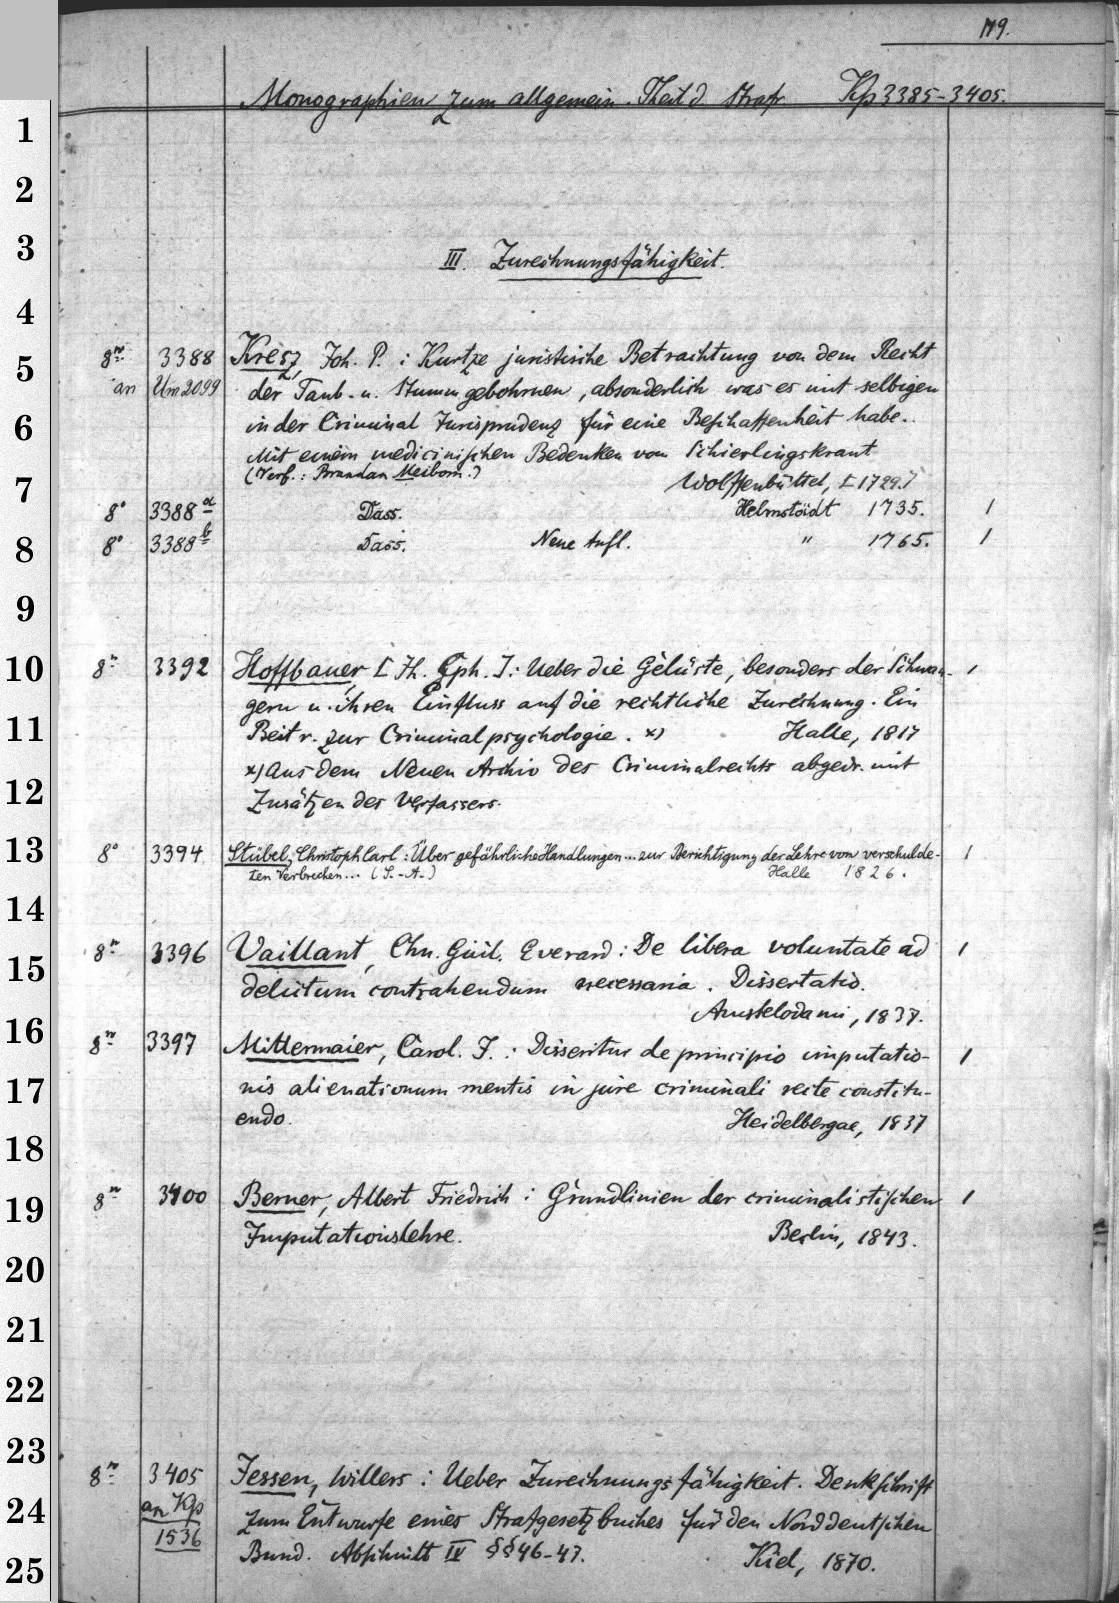 119.
Monographien zum allgemein. Theil d Strafr. Kp 3385-3405.
III. Zurechnungsfähigkeit.
8° 3388 Kresz, Joh. P. : Kurtze juristische Betrachtung von dem Recht
an Um 2099 der Taub- u. Stumm gebohrnen, absonderlich was es mit selbigen
in der Criminal Jurisprudenz für eine Beschaffenheit habe.
Mit einem medicinischen Bedenken vom Schierlingskraut
(Verf.: Brandan Meibom.)
Wolffenbüttel, [1729.]
8° 3388 a Dass. Helmstädt 1735. 1
8° 3388 b Dass. Neue Aufl. " 1765. 1
8° 3392 Hoffbauer [J. H. Cph.]: Ueber die Gelüste, besonders der Schwan- 1
gern u. ihren Einfluss auf die rechtliche Zurechnung. Ein
Beitr. zur Criminalpsychologie. *) Halle, 1817
*) Aus dem Neuen Archiv des Criminalrechts abgedr. mit
Zusätzen des Verfassers.
8° 3394 Stübel, Christoph Carl: Über gefährliche Handlungen... zur Berichtigung der Lehre von verschulde- 1
ten Verbrechen... (S.-A.) Halle 1826.
8° 3396 Vaillant, Chn. Guil. Everard: De libera voluntate ad 1
delictum contrahendum necessaria. Dissertatio.
Amstelodami, 1837.
8° 3397 Mittermaier, Carol. J. : Disseritur de principio imputatio- 1
nis alienationum mentis in jure criminali recte constitu-
endo. Heidelbergae, 1837
8° 3400 Berner, Albert Friedrich : Grundlinien der criminalistischen 1
Imputationslehre. Berlin, 1843.
8° 3405 Jessen, Willers : Ueber Zurechnungsfähigkeit. Denkschrift
an Kp zum Entwurfe eines Strafgesetzbuches für den Norddeutschen
1536 Bund. Abschnitt IV §§46-47. Kiel, 1870.
1
2
3
4
5
6
7
8
9
10
11
12
13
14
15
16
17
18
19
20
21
22
23
24
25